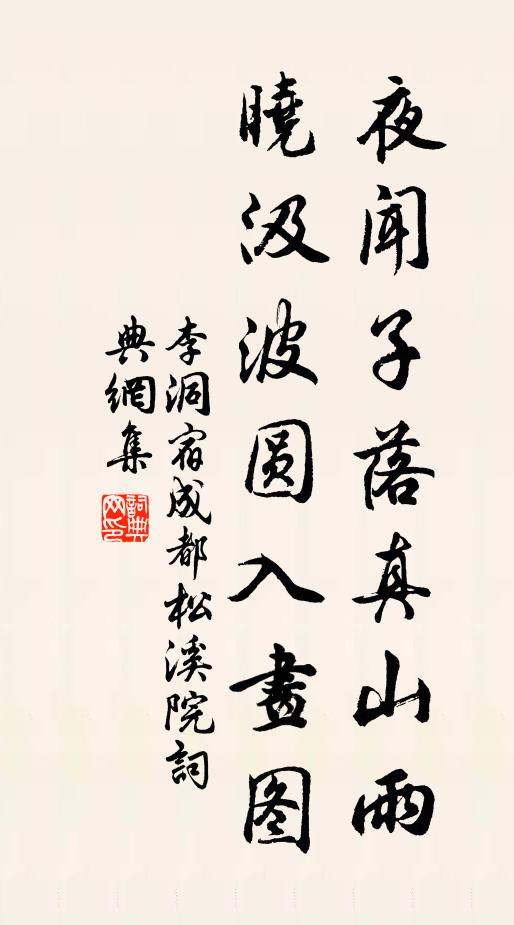 夜闻子落真山雨
晓汲波圆入畫图
李洞宿成都松溪院詞
典網集
詞典
网印